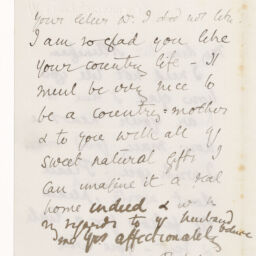 I am so glad you like
your country life - It
must be very nice to
be a country = mother
& to you with all yr
sweet natural gifts I
can imagine it a real
home indeed &
my regards to yr husband
me yrs affectionately